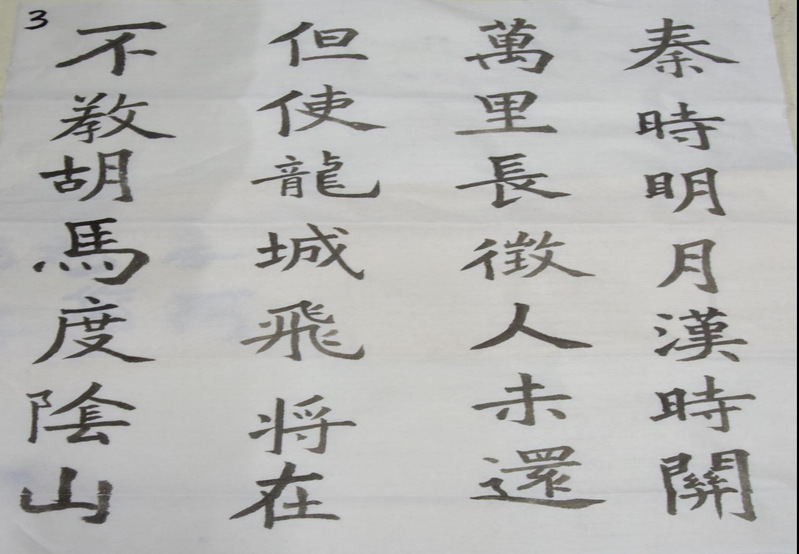 3
秦時明月漢時關
萬里長徵人未還
但使龍城飛将在
不教胡馬度陰山